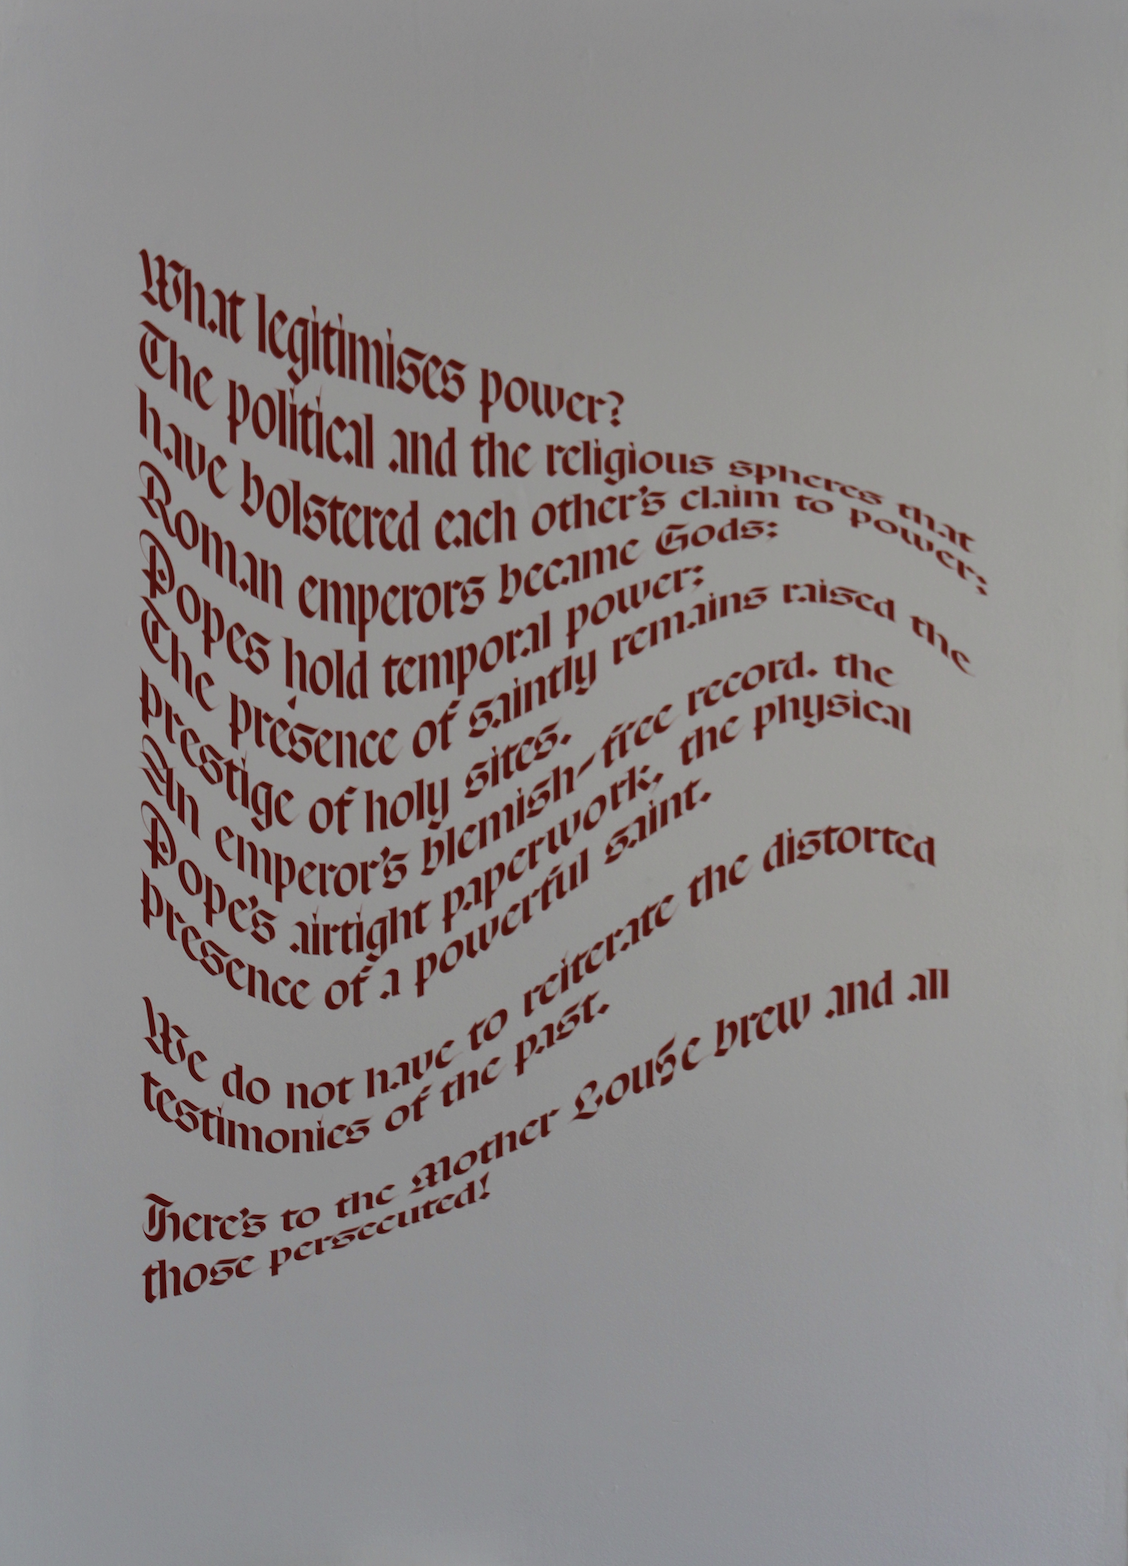 What legitimises power?
The political and the religious spheres that
have bolstered each other's claim to power;
Roman emperors became Gods;
Popes hold temporal power;
The presence of saintly remains raised the
prestige of holy sites.
An emperor's blemish-free record, the
Pope's airtight paperwork, the physical
presence of a powerful saint.
We do not have to reiterate the distorted
testimonies of the past.
Here's to the Mother Louse brew and all
those persecuted!